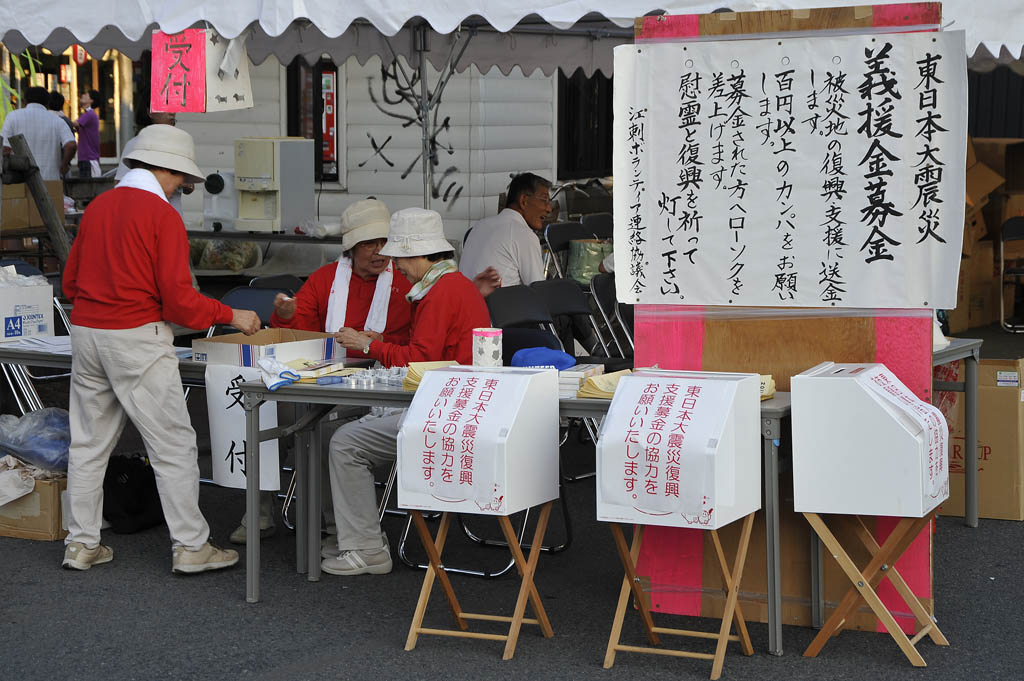 受付
東日本大震災
義援金募金
○被災地の復興支援に送金
します。
○百円以上のカンパをお願い
します。
○募金された方へローソクを
差上げます。
○慰霊と復興を祈って
灯して下さい。
江刺ボランティア連絡協議会
A4
受付
東日本大震災復興
支援募金の協力を
お願いいたします。
東日本大震災復興
支援募金の協力を
お願いいたします。